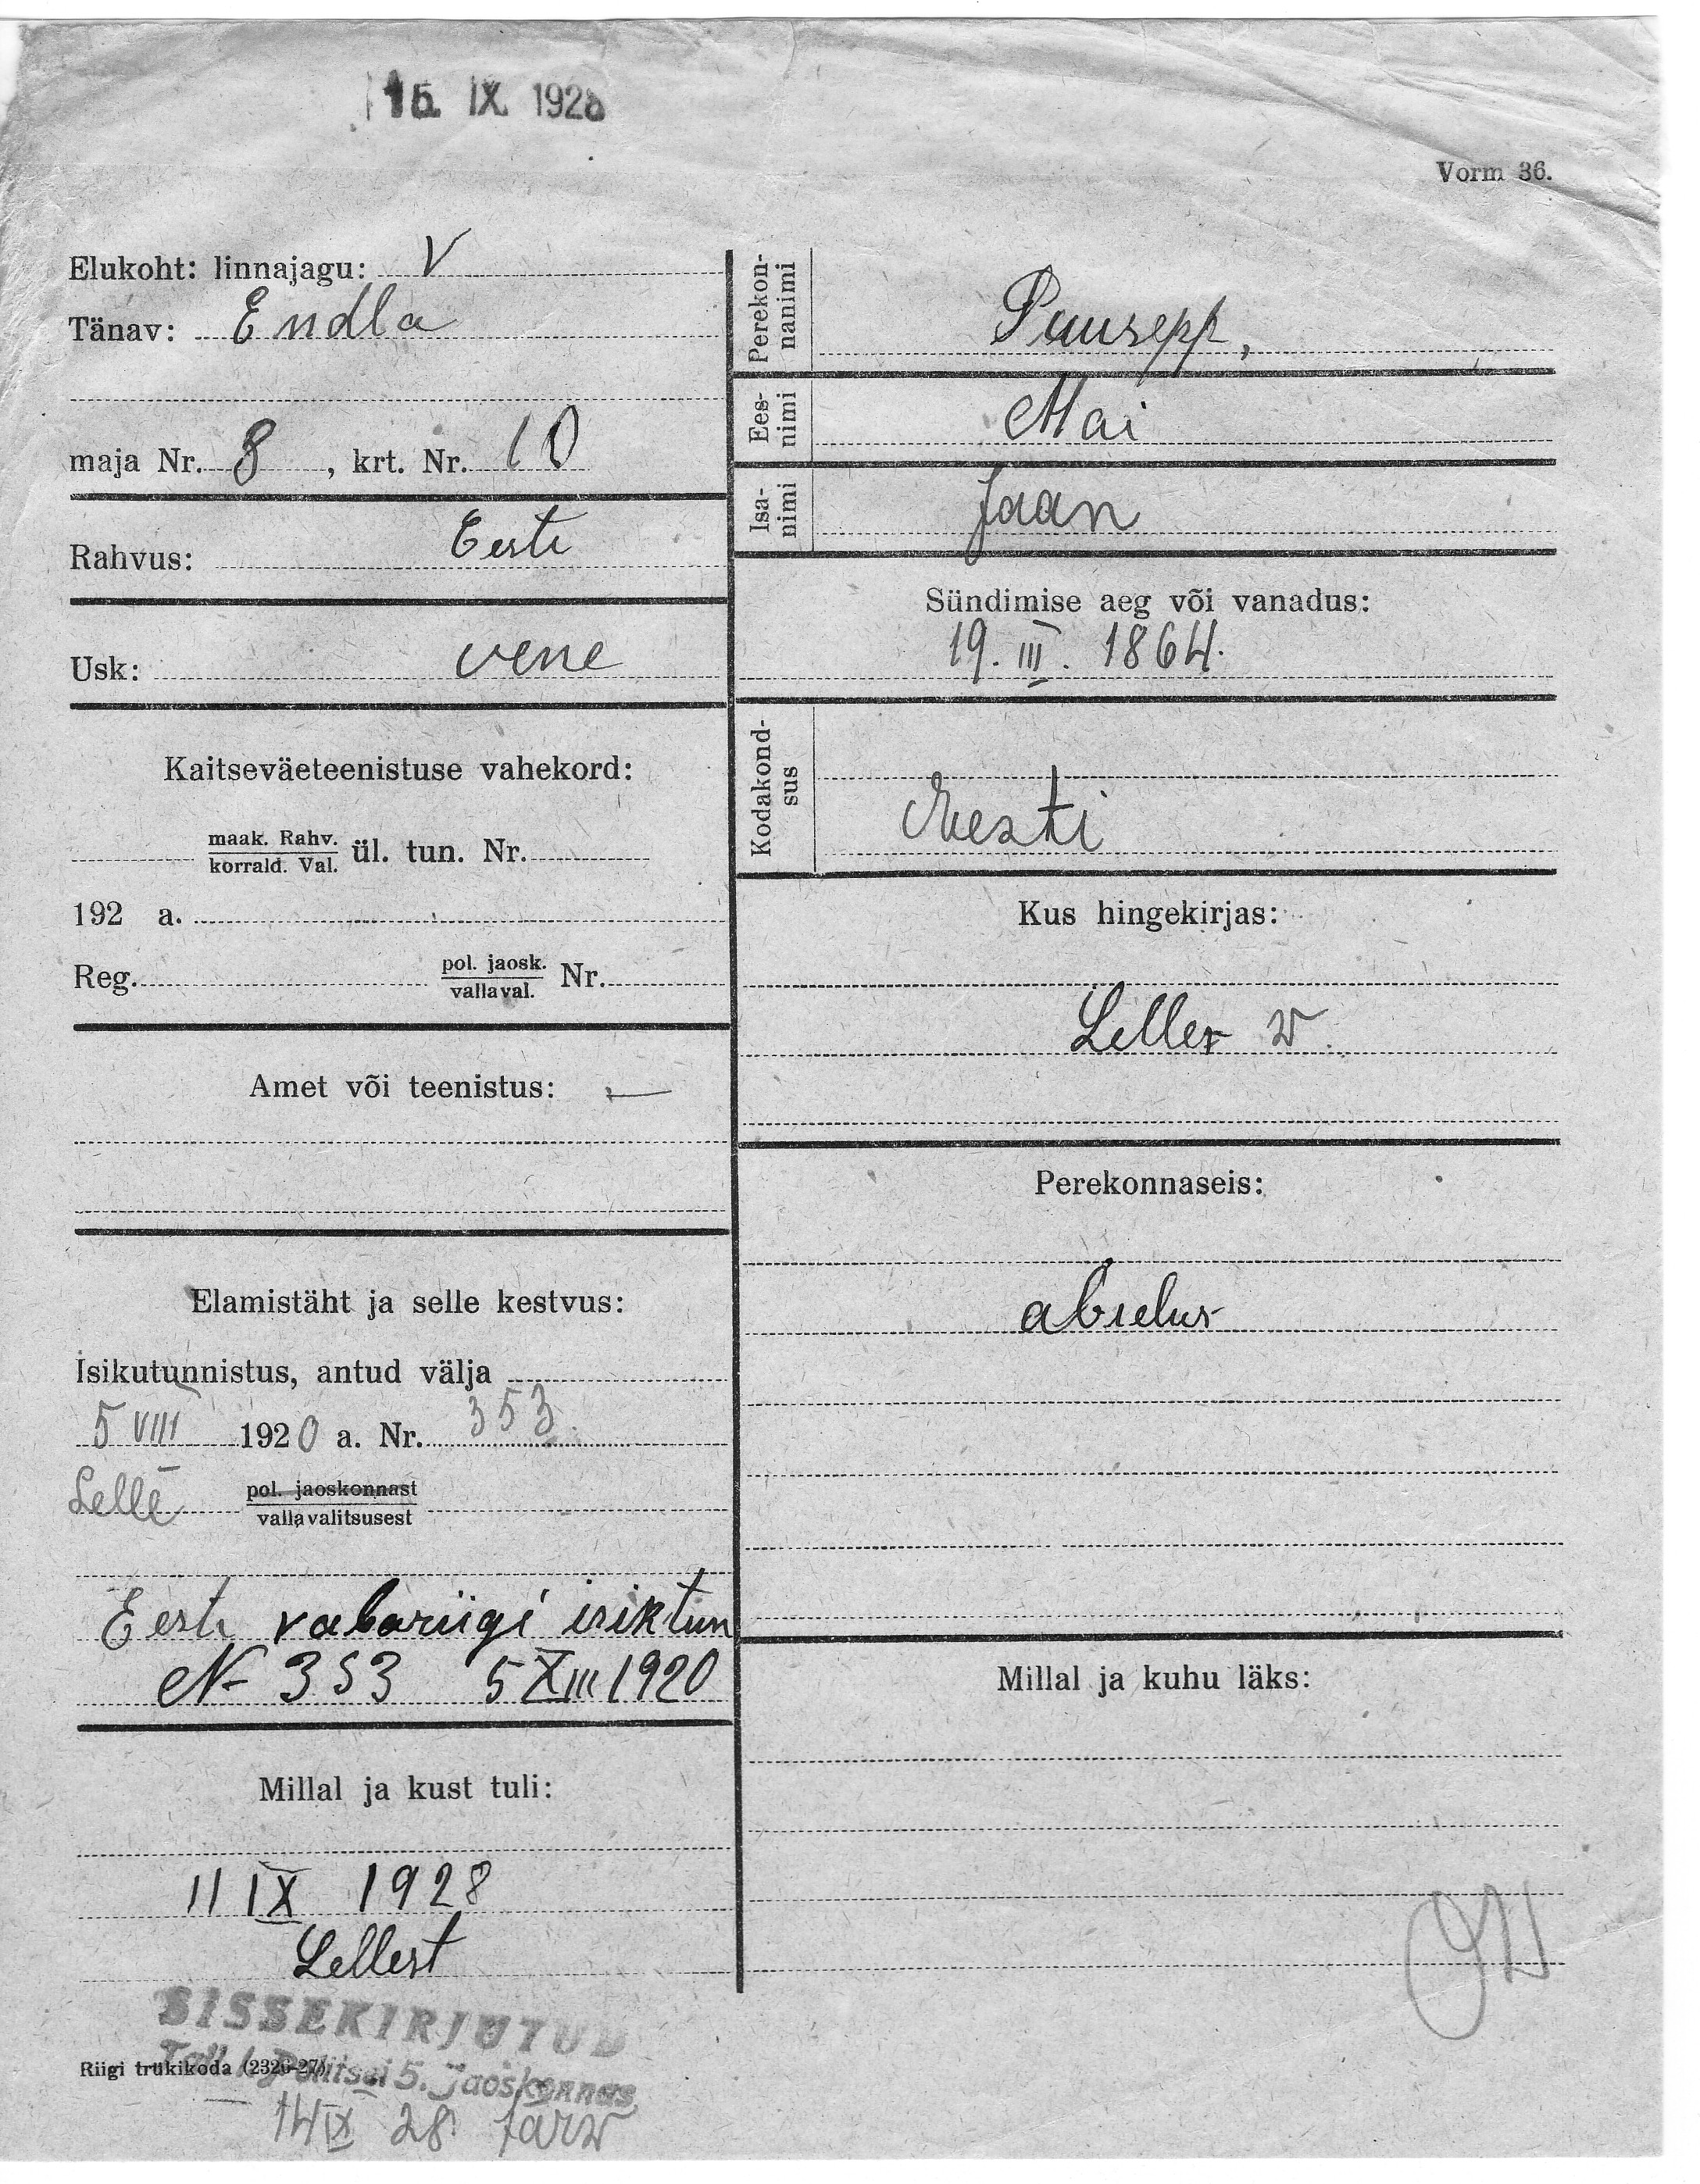 15. IX. 1928
Vorm 36.
Elukoht: linnajagu: V
Tänav: Endla
maja Nr. 8, krt. Nr. 10
Rahvus: Eesti
Usk: vene
Kaitseväeteenistuse vahekord:
maak. Rahv.
korrald. Val. ül. tun. Nr.
192 a.
Reg. pol. jaosk.
vallaval. Nr.
Amet või teenistus: —
Elamistäht ja selle kestvus:
Isikutunnistus, antud välja
5 VIII 1920 a. Nr. 353.
Lelle pol. jaoskonnast
vallavalitsusest
Eesti vabariigi isiktun
N 353 5 XIII 1920
Millal ja kust tuli:
11 IX 1928
Lellest
SISSEKIRJUTUD
Tall. l. Politsei 5. jaoskonnas
Riigi trükikoda (2326-27).
14 IX 28. Jarw
Perekonnanimi
Puusepp,
Eesnimi
Mai
Isanimi
Jaan
Sündimise aeg või vanadus:
19. III. 1864.
Kodakondsus
Eesti
Kus hingekirjas:
Leller v.
Perekonnaseis:
abielus
Millal ja kuhu läks: